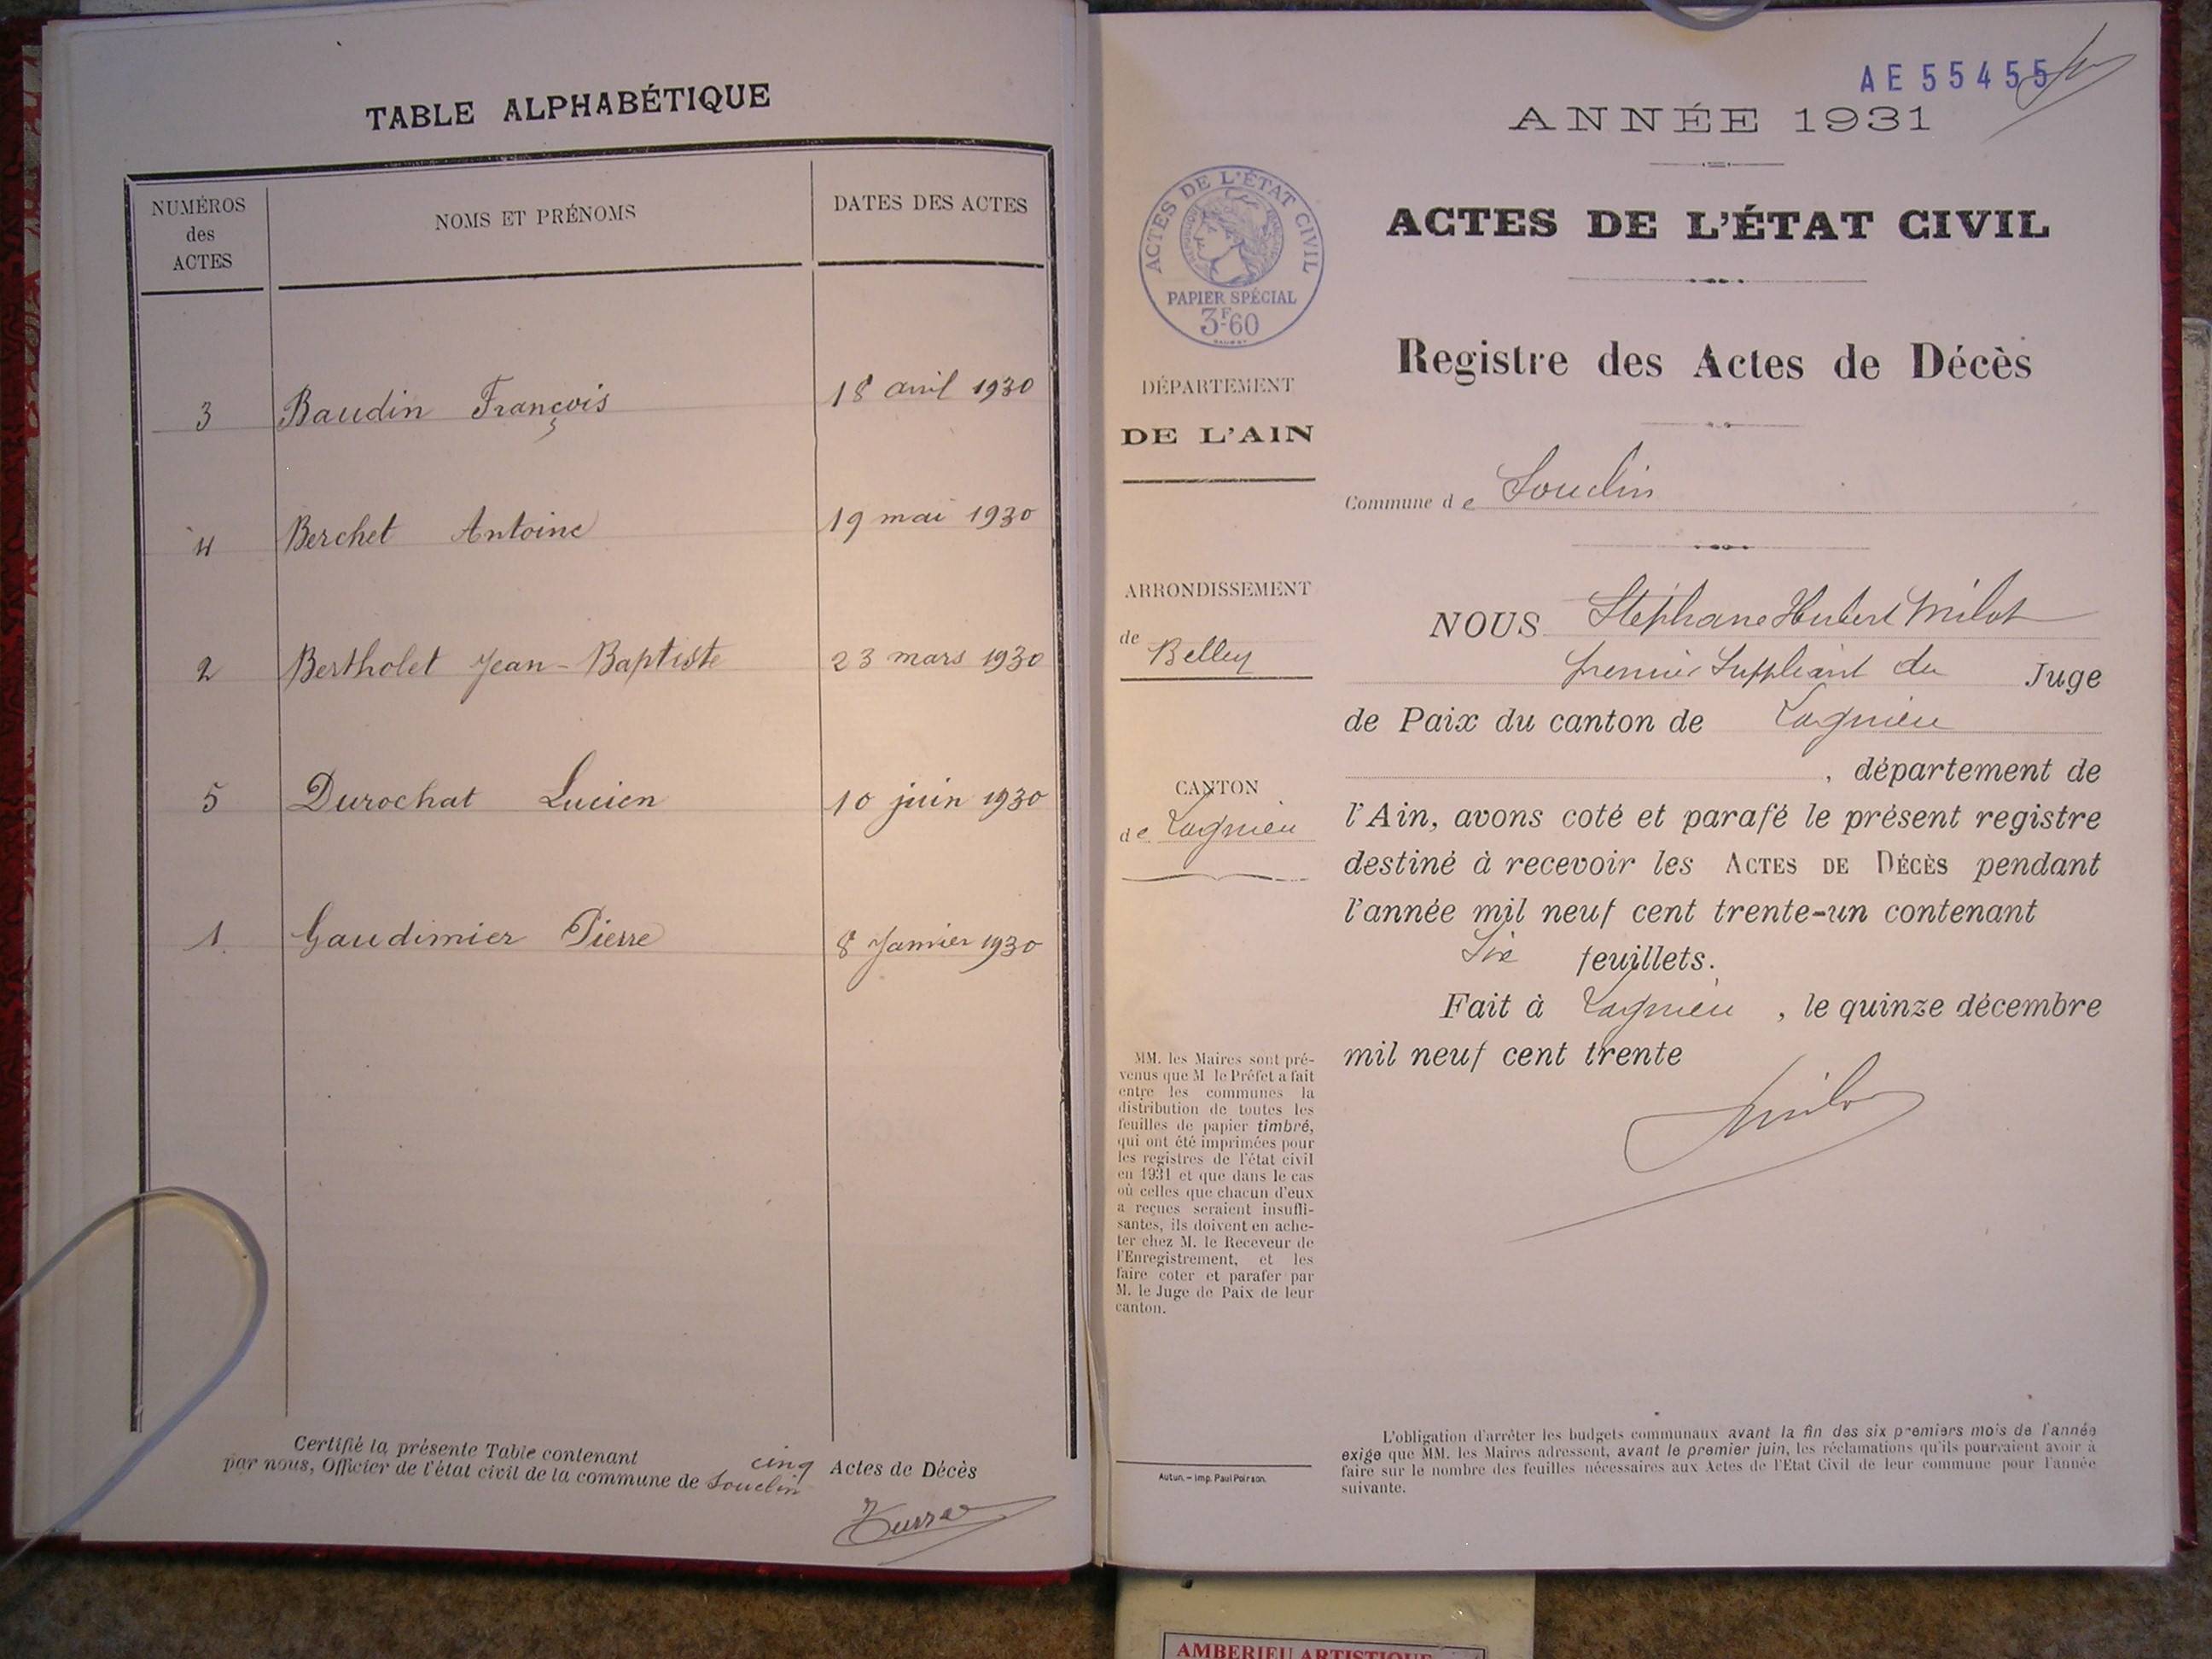 TABLE ALPHABÉTIQUE
NUMÉROS
des
ACTES
NOMS ET PRÉNOMS
DATES DES ACTES
3 Baudin François 18 avril 1930
4 Berchet Antoine 19 mai 1930
2 Bertholet Jean-Baptiste 23 mars 1930
5 Durochat Lucien 10 juin 1930
1. Gaudimier Pierre 8 Janvier 1930
Certifié la présente Table contenant cinq Actes de Décès
par nous, Officier de l'état civil de la commune de Souclin
AE 55455
ANNÉE 1931
ACTES DE L'ÉTAT CIVIL
PAPIER SPÉCIAL
3F60
ACTES DE L'ÉTAT CIVIL
Registre des Actes de Décès
DÉPARTEMENT
DE L'AIN
Commune de Souclin
ARRONDISSEMENT
de Belley
CANTON
de Lagnieu
NOUS Stéphane Hubert Milot
premier Suppléant du Juge
de Paix du canton de Lagnieu
, département de
l'Ain, avons coté et parafé le présent registre
destiné à recevoir les ACTES DE DÉCÈS pendant
l'année mil neuf cent trente-un contenant
Six feuillets.
Fait à Lagnieu , le quinze décembre
mil neuf cent trente
Milot
MM. les Maires sont pré-
venus que M le Préfet a fait
entre les communes la
distribution de toutes les
feuilles de papier timbré,
qui ont été imprimées pour
les registres de l'état civil
en 1931 et que dans le cas
où celles que chacun d'eux
a reçues seraient insuffi-
santes, ils doivent en ache-
ter chez M. le Receveur de
l'Enregistrement, et les
faire coter et parafer par
M. le Juge de Paix de leur
canton.
Autun. – Imp. Paul Poirson.
L'obligation d'arrêter les budgets communaux avant la fin des six premiers mois de l'année
exige que MM. les Maires adressent, avant le premier juin, les réclamations qu'ils pourraient avoir à
faire sur le nombre des feuilles nécessaires aux Actes de l'Etat Civil de leur commune pour l'année
suivante.
AMBERIEU ARTISTIQUE